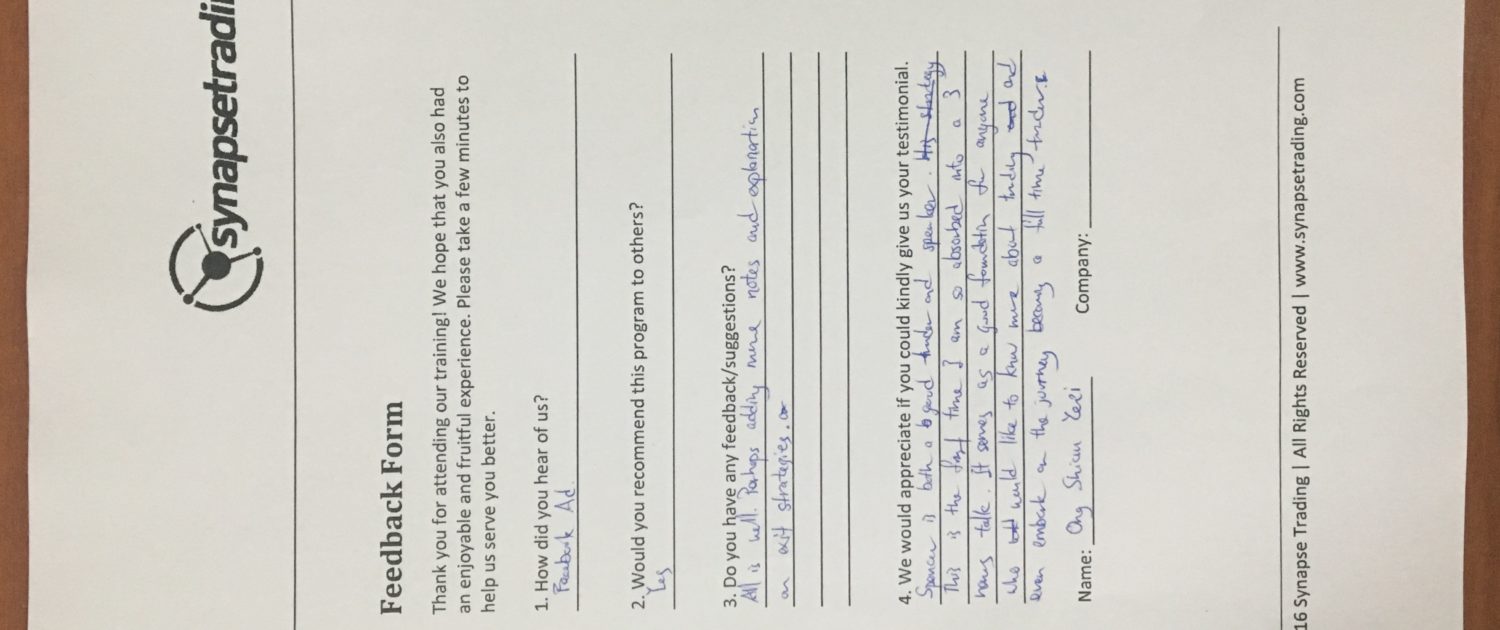 synapsetradin
Feedback Form
Thank you for attending our training! We hope that you also had
an enjoyable and fruitful experience. Please take a few minutes to
help us serve you better.
1. How did you hear of us?
Facebook Ad.
2. Would you recommend this program to others?
Yes
3. Do you have any feedback/suggestions?
All is well. Perhaps adding more notes and explanation
on exit strategies.
4. We would appreciate if you could kindly give us your testimonial.
Spencer is both a good trader and speaker. His strategy
This is the first time I am so absorbed into a 3
hours talk. It serves as a good foundation for anyone
who would like to know more about trading and
even embark on the journey becoming a full time trader.
Name: Ong Shien Company:
16 Synapse Trading | All Rights Reserved | www.synapsetrading.com